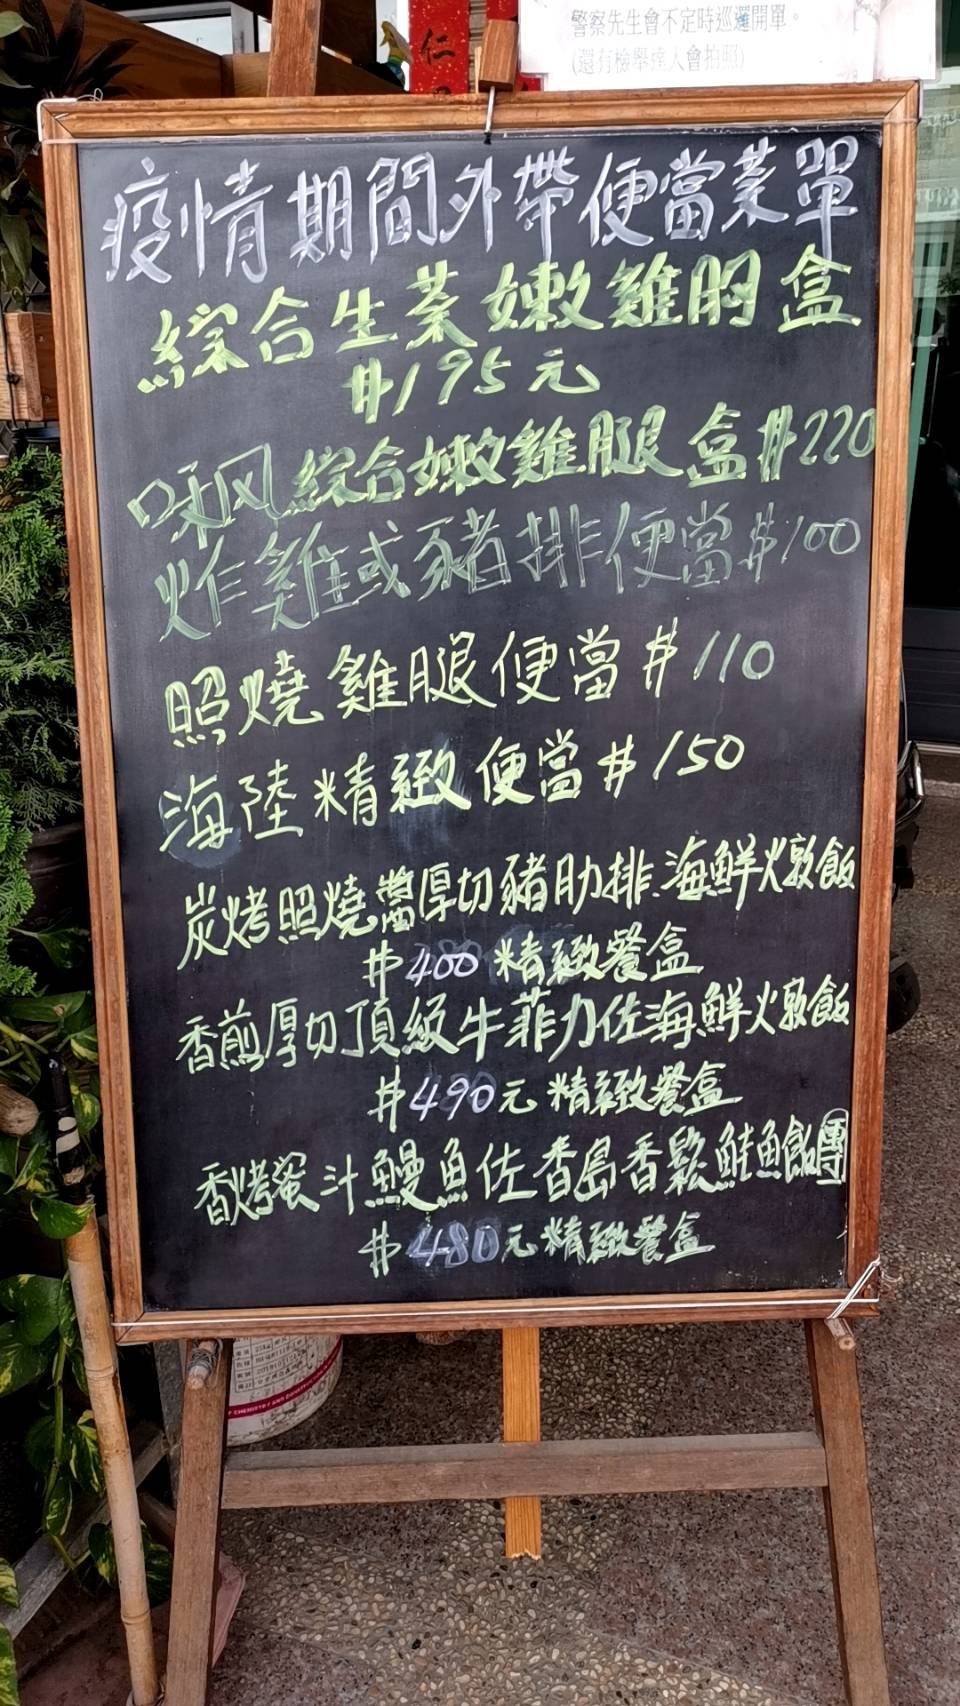 仁
警察先生會不定時巡邏開單。
(還有檢舉達人會拍照)
疫情期間外帶便當菜單
綜合生菜嫩雞胸盒
#195元
味风綜合嫩雞腿盒#220
炸雞或豬排便當#100
照燒雞腿便當#110
海陸精緻便當#150
炭烤照燒醬厚切豬肋排.海鮮火燉飯
#400精緻餐盒
香煎厚切頂級牛菲力佐海鮮火燉飯
#490元精緻餐盒
香烤蜜汁鰻魚佐香島香鬆鮭魚飯團
#480元精緻餐盒